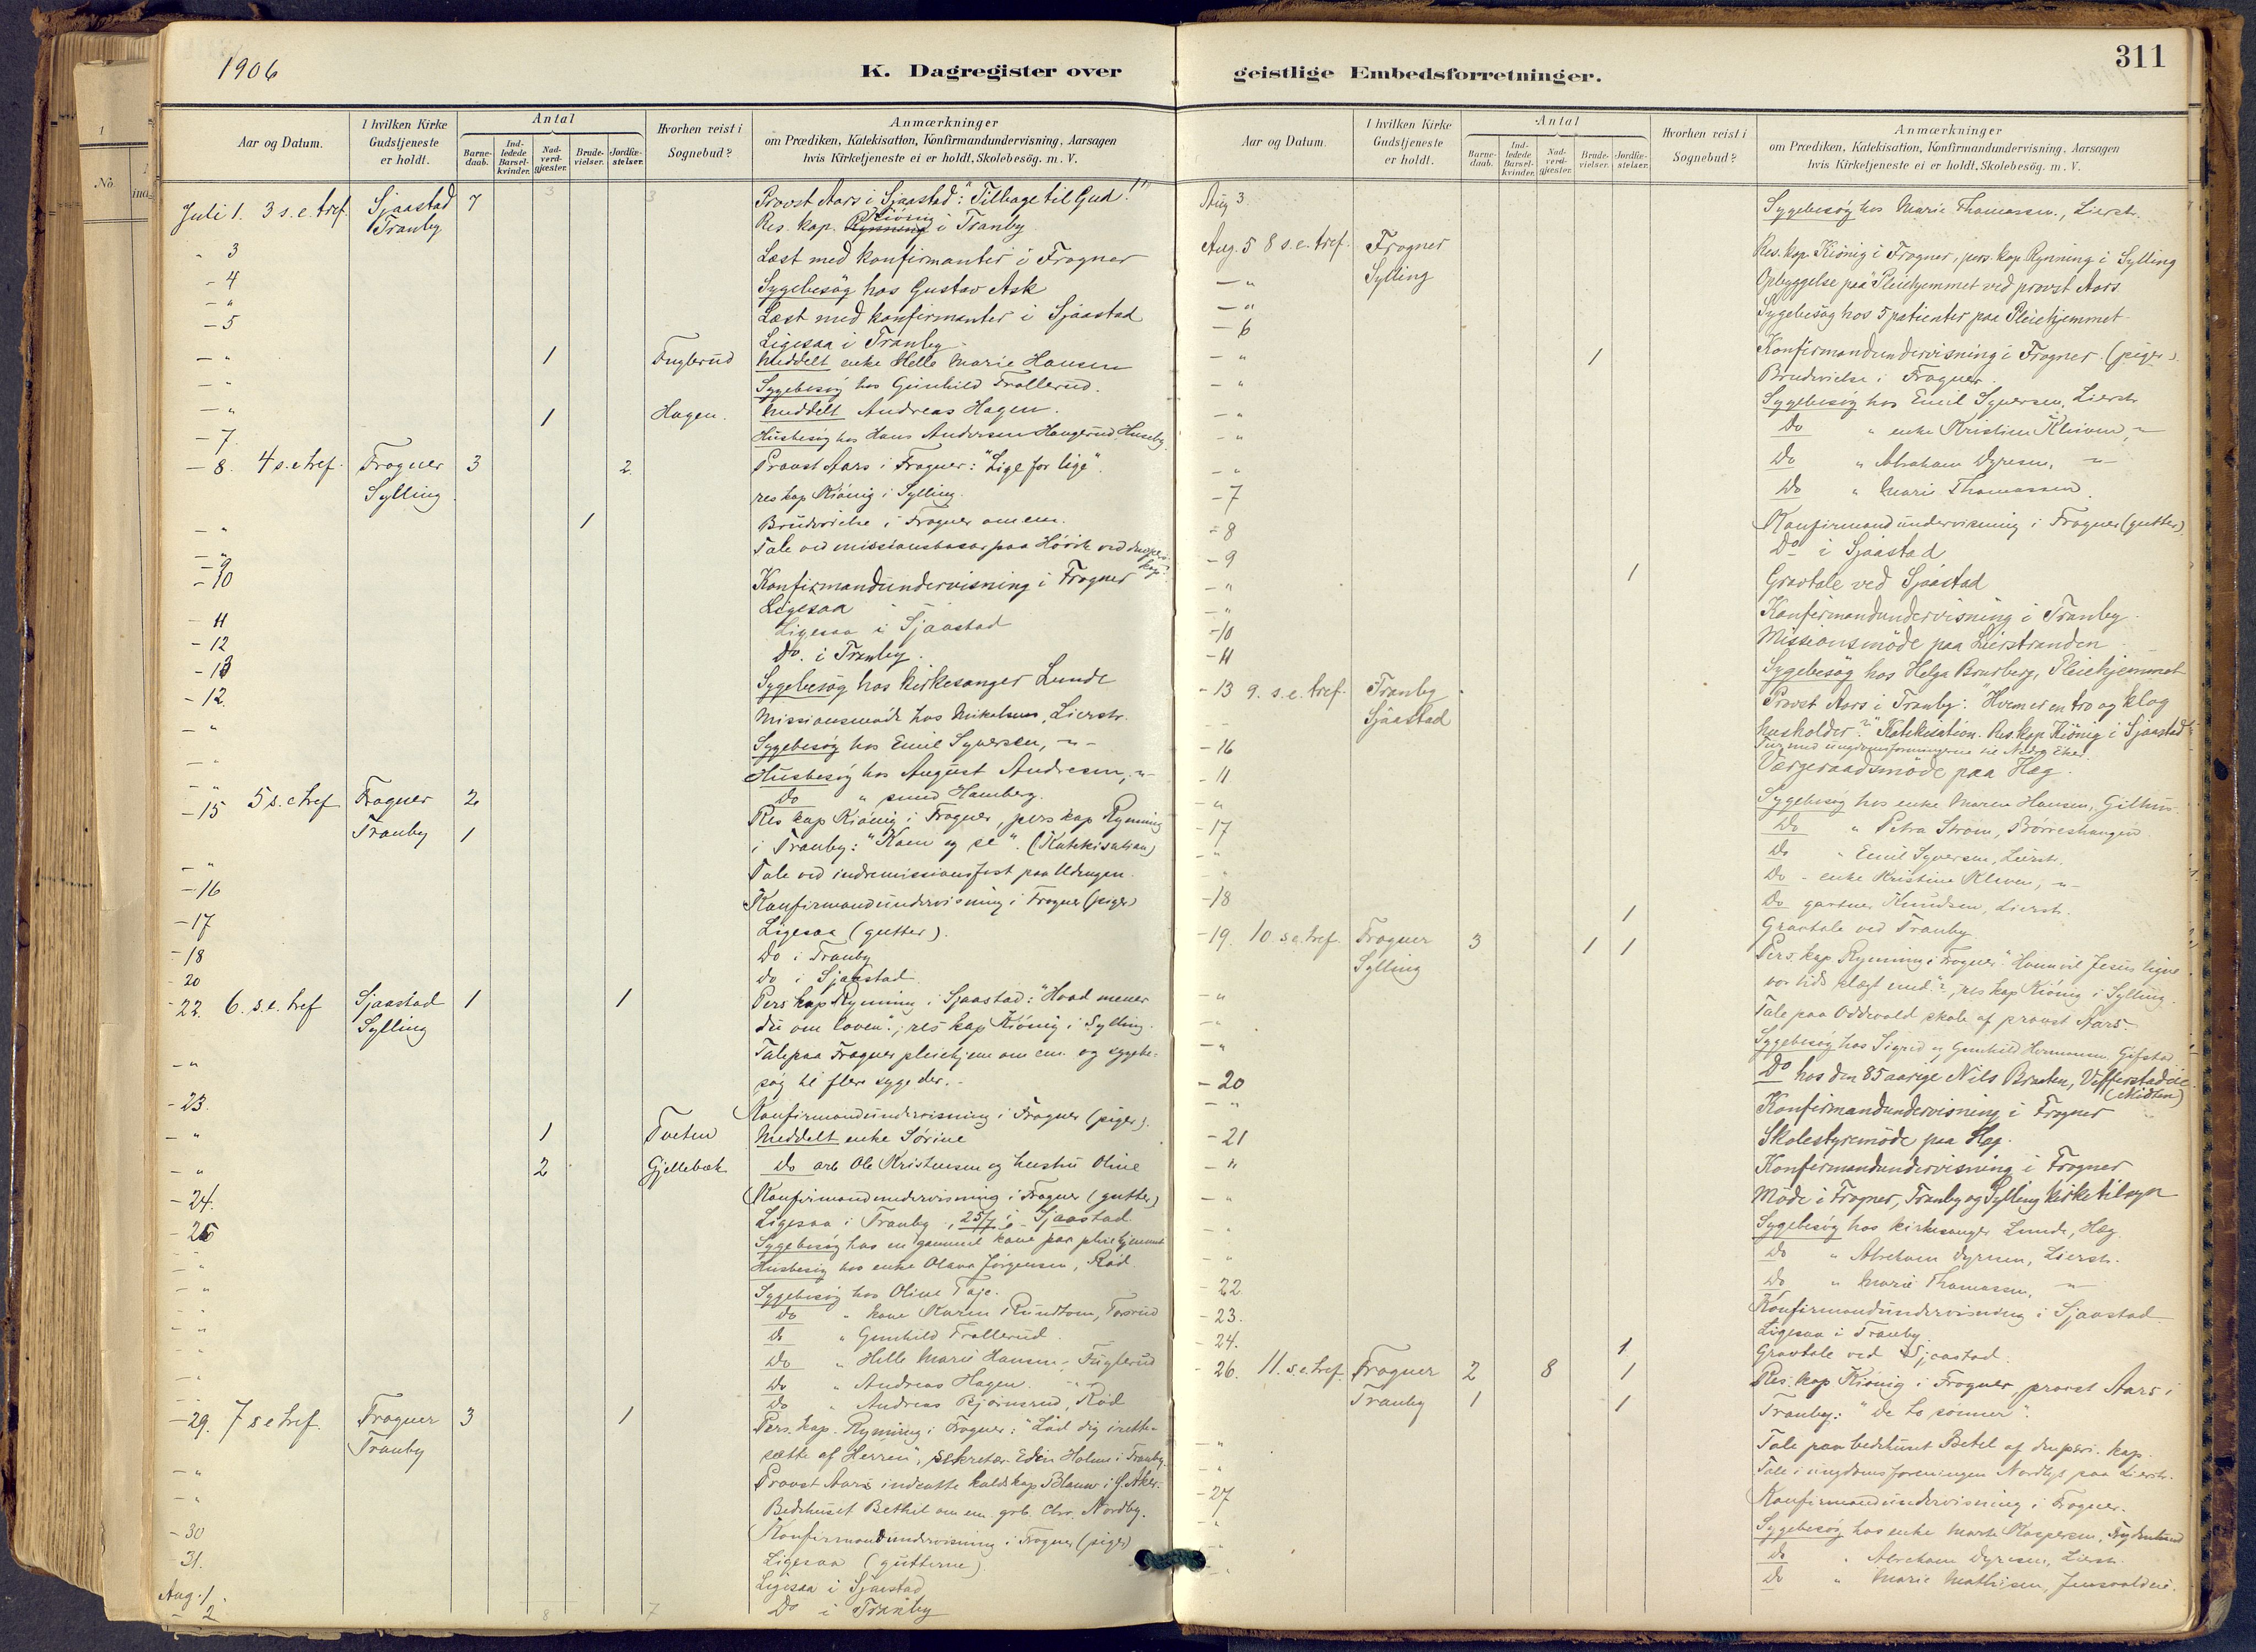 1906
K. Dagregister over
Aar og Datum.
I hvilken Kirke Gudstjeneste er holdt.
Antal
Barnedaab.
Indledede Barselkvinder.
Nadverdgjæster.
Brudevielser.
Jordfæstelser.
Hvorhen reist i Sognebud?
Anmærkninger
om Prædiken, Katekisation, Konfirmandundervisning, Aarsagen
hvis Kirketjeneste ei er holdt, Skolebesög. m. V.
Juli 1. 3 s. e. tref. Sjaastad 7 Provst Aars i Sjaastad: "Tilbage til Gud!"
Tranby Res. kap. Kiönig i Tranby
" 3 Læst med konfirmanter i Frogner
- 4 Sygebesög hos Gustav Ask
- " Læst med konfirmanter i Sjaastad
- 5 Ligesaa i Tranby
- " 1 Fuglerud Meddelt enke Helle Marie Hansen
- " Sygebesög hos Gunhild Trollerud.
- " 1 Hagen. Meddelt Andreas Hagen.
- 7. Husbesög hos Hans Andersen Haugerud, Huseby
- 8. 4 s. e. tref. Frogner 3 2 Provst Aars i Frogner: "Lige for lige".
Sylling res kap Kiönig i Sylling.
- " 1 Brudevielse i Frogner om em.
- " Tale ved missionsbasar paa Hörvik ved
- 9
- 10 Konfirmandundervisning i Frogner
Ligesaa
- 11 Ligesaa i Sjaastad
- 12 Do. i Tranby.
- 13 Sygebesög hos kirkesanger Lunde
- 12. Missionsmöde hos Mikalsen, Lierstr.
- " Sygebesög hos Emil Syversen, - " -
- " Husbesög hos August Andresen, - " -
- " Do " smed Hamberg.
- 15 5 s. e. tref Frogner 2 Res kap Kiönig i Frogner, pers kap Rynning
Tranby 1 i Tranby: "Kom og se". (Katekisation)
" Tale ved indremissionsfest paa Udengen.
- 16 Konfirmandundervisning i Frogner (piger)
- 17 Ligesaa (gutter).
- 18 Do i Tranby
- 20 do i Sjaastad.
- 22. 6. s. e. tref Sjaastad 1 1 Pers kap Rynning i Sjaastad: "Hvad mener
Sylling du om loven"; res kap Kiönig i Sylling.
- " Tale paa Frogner pleiehjem om em. og sygebe-
sög til flere syge der. -
- 23. Konfirmandundervisning i Frogner (piger).
- " 1 Tveten Meddelt enke Sörine
- " 2 Gjellebæk Do arb Ole Kristensen og hustru Oline
- 24. Konfirmandundervisning i Frogner (gutter)
- 26 Ligesaa i Tranby, 25/7 i Sjaastad
- " Sygebesög hos en gammel kone paa pleiehjemmet
- " Husbesög hos enke Olava Jörgensen, Röd.
- " Sygebesög hos Oline Taje.
- " Do " kone Karen i Rundtom, Tosrud
- " Do " Gunhild Trollerud.
- " Do " Helle Marie Hansen, Fuglerud
- " Do " Andreas Hagen. - " -
- " Do " Andreas Björnsrud, Röd
- 29. 7 s e tref. Frogner 3 1 Pers. kap. Rynning i Frogner: "Lad dig irette-
Tranby sætte af Herren", sekretær Edin Holme i Tranby.
- " Provst Aars indsatte kaldskap Blauw i Ö. Aker.
- " Bedehuset Bethel om em. grb. Chr. Nordby.
- 30 Konfirmandundervisning i Frogner (piger)
- 31. Ligesaa (gutterne)
Aug. 1. Ligesaa i Sjaastad
- 2 Do i Tranby
311
geistlige Embedsforretninger.
Aar og Datum.
I hvilken Kirke Gudstjeneste er holdt.
Antal
Barnedaab.
Indledede Barselkvinder.
Nadverdgjæster.
Brudevielser.
Jordfæstelser.
Hvorhen reist i Sognebud?
Anmærkninger
om Prædiken, Katekisation, Konfirmandundervisning, Aarsagen
hvis Kirketjeneste ei er holdt, Skolebesög. m. V.
Aug 3. Sygebesög hos Marie Thomassen, Lierstr.
Aug. 5 8 s. e. tref. Frogner Res. kap. Kiönig i Frogner, pers. kap Rynning i Sylling
- " Sylling Opbyggelse paa Pleiehjemmet ved provst Aars
- " Sygebesög hos 5 patienter paa Pleiehjemmet
- 6 Konfirmandundervisning i Frogner. (piger)
- " 1 Brudevielse i Frogner
- " Sygebesög hos Emil Syversen, Lierstr
- " Do " enke Kristine Kleven, - " -
- " Do " Abraham Dyresen, - " -
- " Do " Marie Thomassen
- 7 Konfirmandundervisning i Frogner (gutter)
- 8 Do i Sjaastad
- 9 1 Gravtale ved Sjaastad
- " Konfirmandundervisning i Tranby
- 10 Missionsmöde paa Lierstranden
- 11 Sygebesög hos Helga Brusberg, Pleiehjemmet
- 13 9. s. e. tref. Tranby Provst Aars i Tranby: "Hvem er en tro og klog
Sjaastad husholder?" Katekisation. Res. kap Kiönig i Sjaastad
- 16 Værgeraadsmöde paa Hæg.
- 11 Sygebesög hos enke Maren Hansen, Gilhus
- " Do " Petra Ström, Börreshaugen
- 17 Do " Emil Syversen, Lierstr.
- " Do - enke Kristine Kleven, - " -
- 18 Do gartner Knudsen, Lierstr.
1 Gravtale ved Tranby
- 19. 10. s. e. tref. Frogner 3 1 1 Pers. kap Rynning i Frogner: "Hvem vil Jesus ligne
Sylling vor tids slægt med"?, res kap Kiönig i Sylling.
- " Tale paa Oddevold skole af provst Aars.
- " Sygebesög hos Sigrid og Gunhild Hermansen, Gifstad
- " Do hos den 85 aarige Nils Braaten, Vefferstadeie
- 20 Konfirmandundervisning i Frogner
- " Skolestyremöde paa Hæg.
- 21 Konfirmandundervisning i Frogner
- " Möde i Frogner, Tranby og Sylling kirketilsyn
- " Sygebesög hos kirkesanger Lunde, Hæg
- " Do " Abraham Dyresen, Lierstr.
- " Do " Marie Thomassen, - " -
- 22. Konfirmandundervisning i Sjaastad
- 23. Ligesaa i Tranby.
- 24. 1 Gravtale ved Sjaastad.
- 26. 11. s. e. tref. Frogner 2 8 1 Res. kap Kiönig i Frogner, provst Aars i
Tranby 1 1 Tranby: "De to sönner".
- " Tale paa bedehuset Betel af den pers. kap.
- " Tale i ungdomsforeningen Nordlys paa Lierstr.
- 27 Konfirmandundervisning i Frogner.
- " Sygebesög hos enke Marte Kaspersen,
- " Do " Abraham Dyresen, Lierstr.
- " Do " Marie Mathisen,